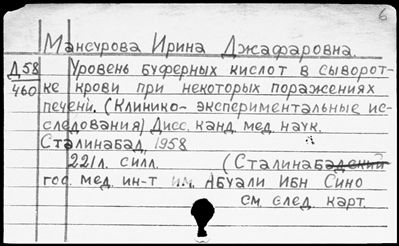 6
Мансурова Ирина Джафаровна.
Д58 Уровень буферных кислот в сыворот-
460 ке крови при некоторых поражениях
печени. (Клинико-экспериментальные ис-
следования) Дисс. канд. мед. наук.
Сталинабад, 1958
221л. с илл. (Сталинабадский
гос. мед. ин-т им. Абуали Ибн Сино
см. след. карт.